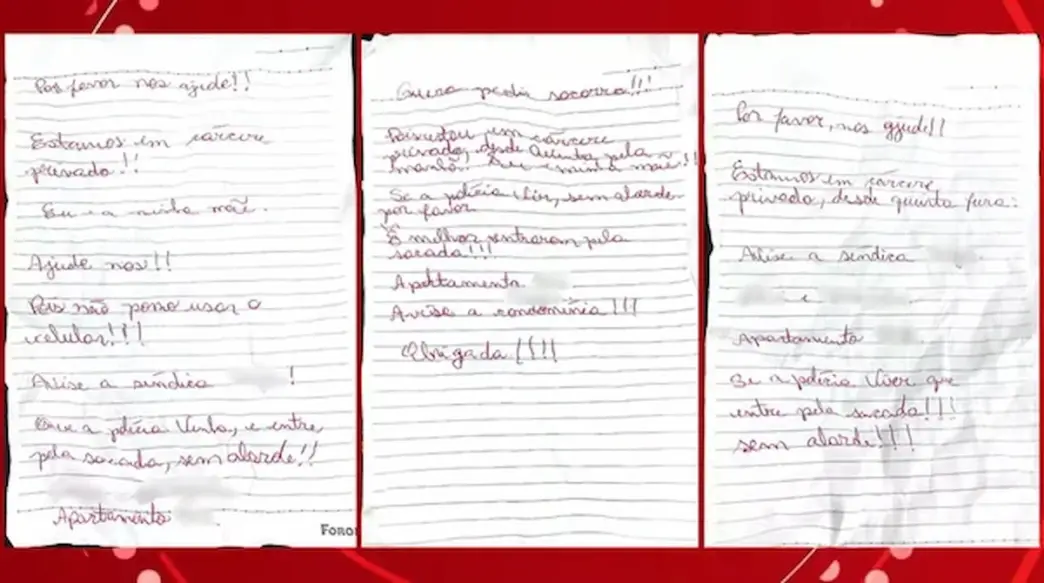 Por favor nos ajude!!
Estamos em cárcere
privado!!
Eu e a minha mãe.
Ajude nos!!
Pois não posso usar o
celular!!!
Avise a síndica !
Que a polícia venha, e entre,
pela sacada, sem alarde!!
Apartamento
Foron
Quero pedir socorro!!!
Pois estou em cárcere
privado, desde Quinta, pela
manhã. Eu e minha mãe!!
Se a polícia vier, sem alarde
por favor
É melhor, entraram pela
sacada!!!
Apartamento
Avise a condomínia!!!
Obrigada!!!!
Por favor, nos ajude!!
Estamos em cárcere
privado, desde quinta fura.
Avise a síndica
e
Apartamento
Se a polícia vier que
entre pela sacada!!!
sem alarde!!!